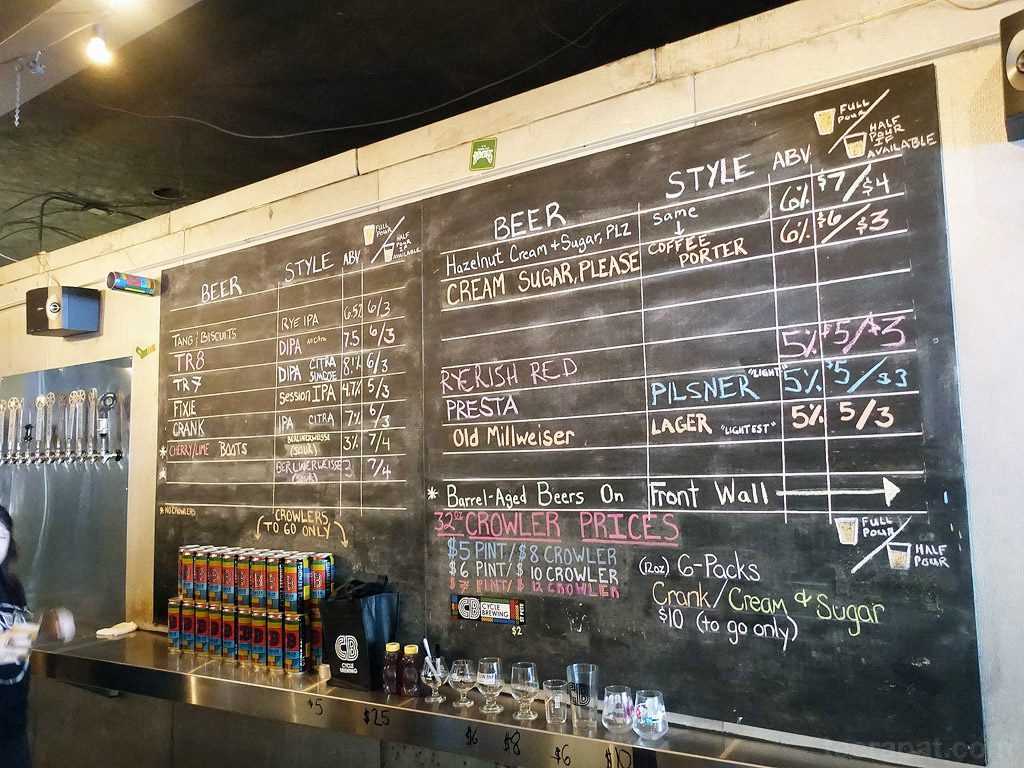 BEER STYLE ABV FULL POUR / HALF POUR IF AVAILABLE
TANG & BISCUITS RYE IPA 6.5% 6/3
TR8 DIPA All Citra 7.5 6/3
TR7 DIPA CITRA SIMCOE 8.1% 6/3
FIXIE Session IPA 4.7% 5/3
CRANK IPA CITRA 7% 6/3
* CHERRY/LIME BOOTS BERLINERWEISSE (SOUR) 3% 7/4
BERLINERWEISSE (SOUR) 3 7/4
* NO CROWLERS
CROWLERS
TO GO ONLY
BEER STYLE ABV FULL POUR / HALF POUR IF AVAILABLE
Hazelnut Cream & Sugar, PLZ same ↓ 6% $7/$4
CREAM SUGAR, PLEASE COFFEE PORTER 6% $6/$3
RYERISH RED 5% $5/$3
PRESTA PILSNER "LIGHT" 5% $5/$3
Old Millweiser LAGER "LIGHTEST" 5% 5/3
* Barrel-Aged Beers On Front Wall →
32oz CROWLER PRICES
$5 PINT/$8 CROWLER
$6 PINT/$10 CROWLER
PINT/$12 CROWLER
FULL POUR / HALF POUR
(12oz) 6-Packs
Crank/Cream & Sugar
$10 (to go only)
CB CYCLE BREWING
$2
CB
CYCLE
BREWING
$5 $25 $6 $8 $6 $10